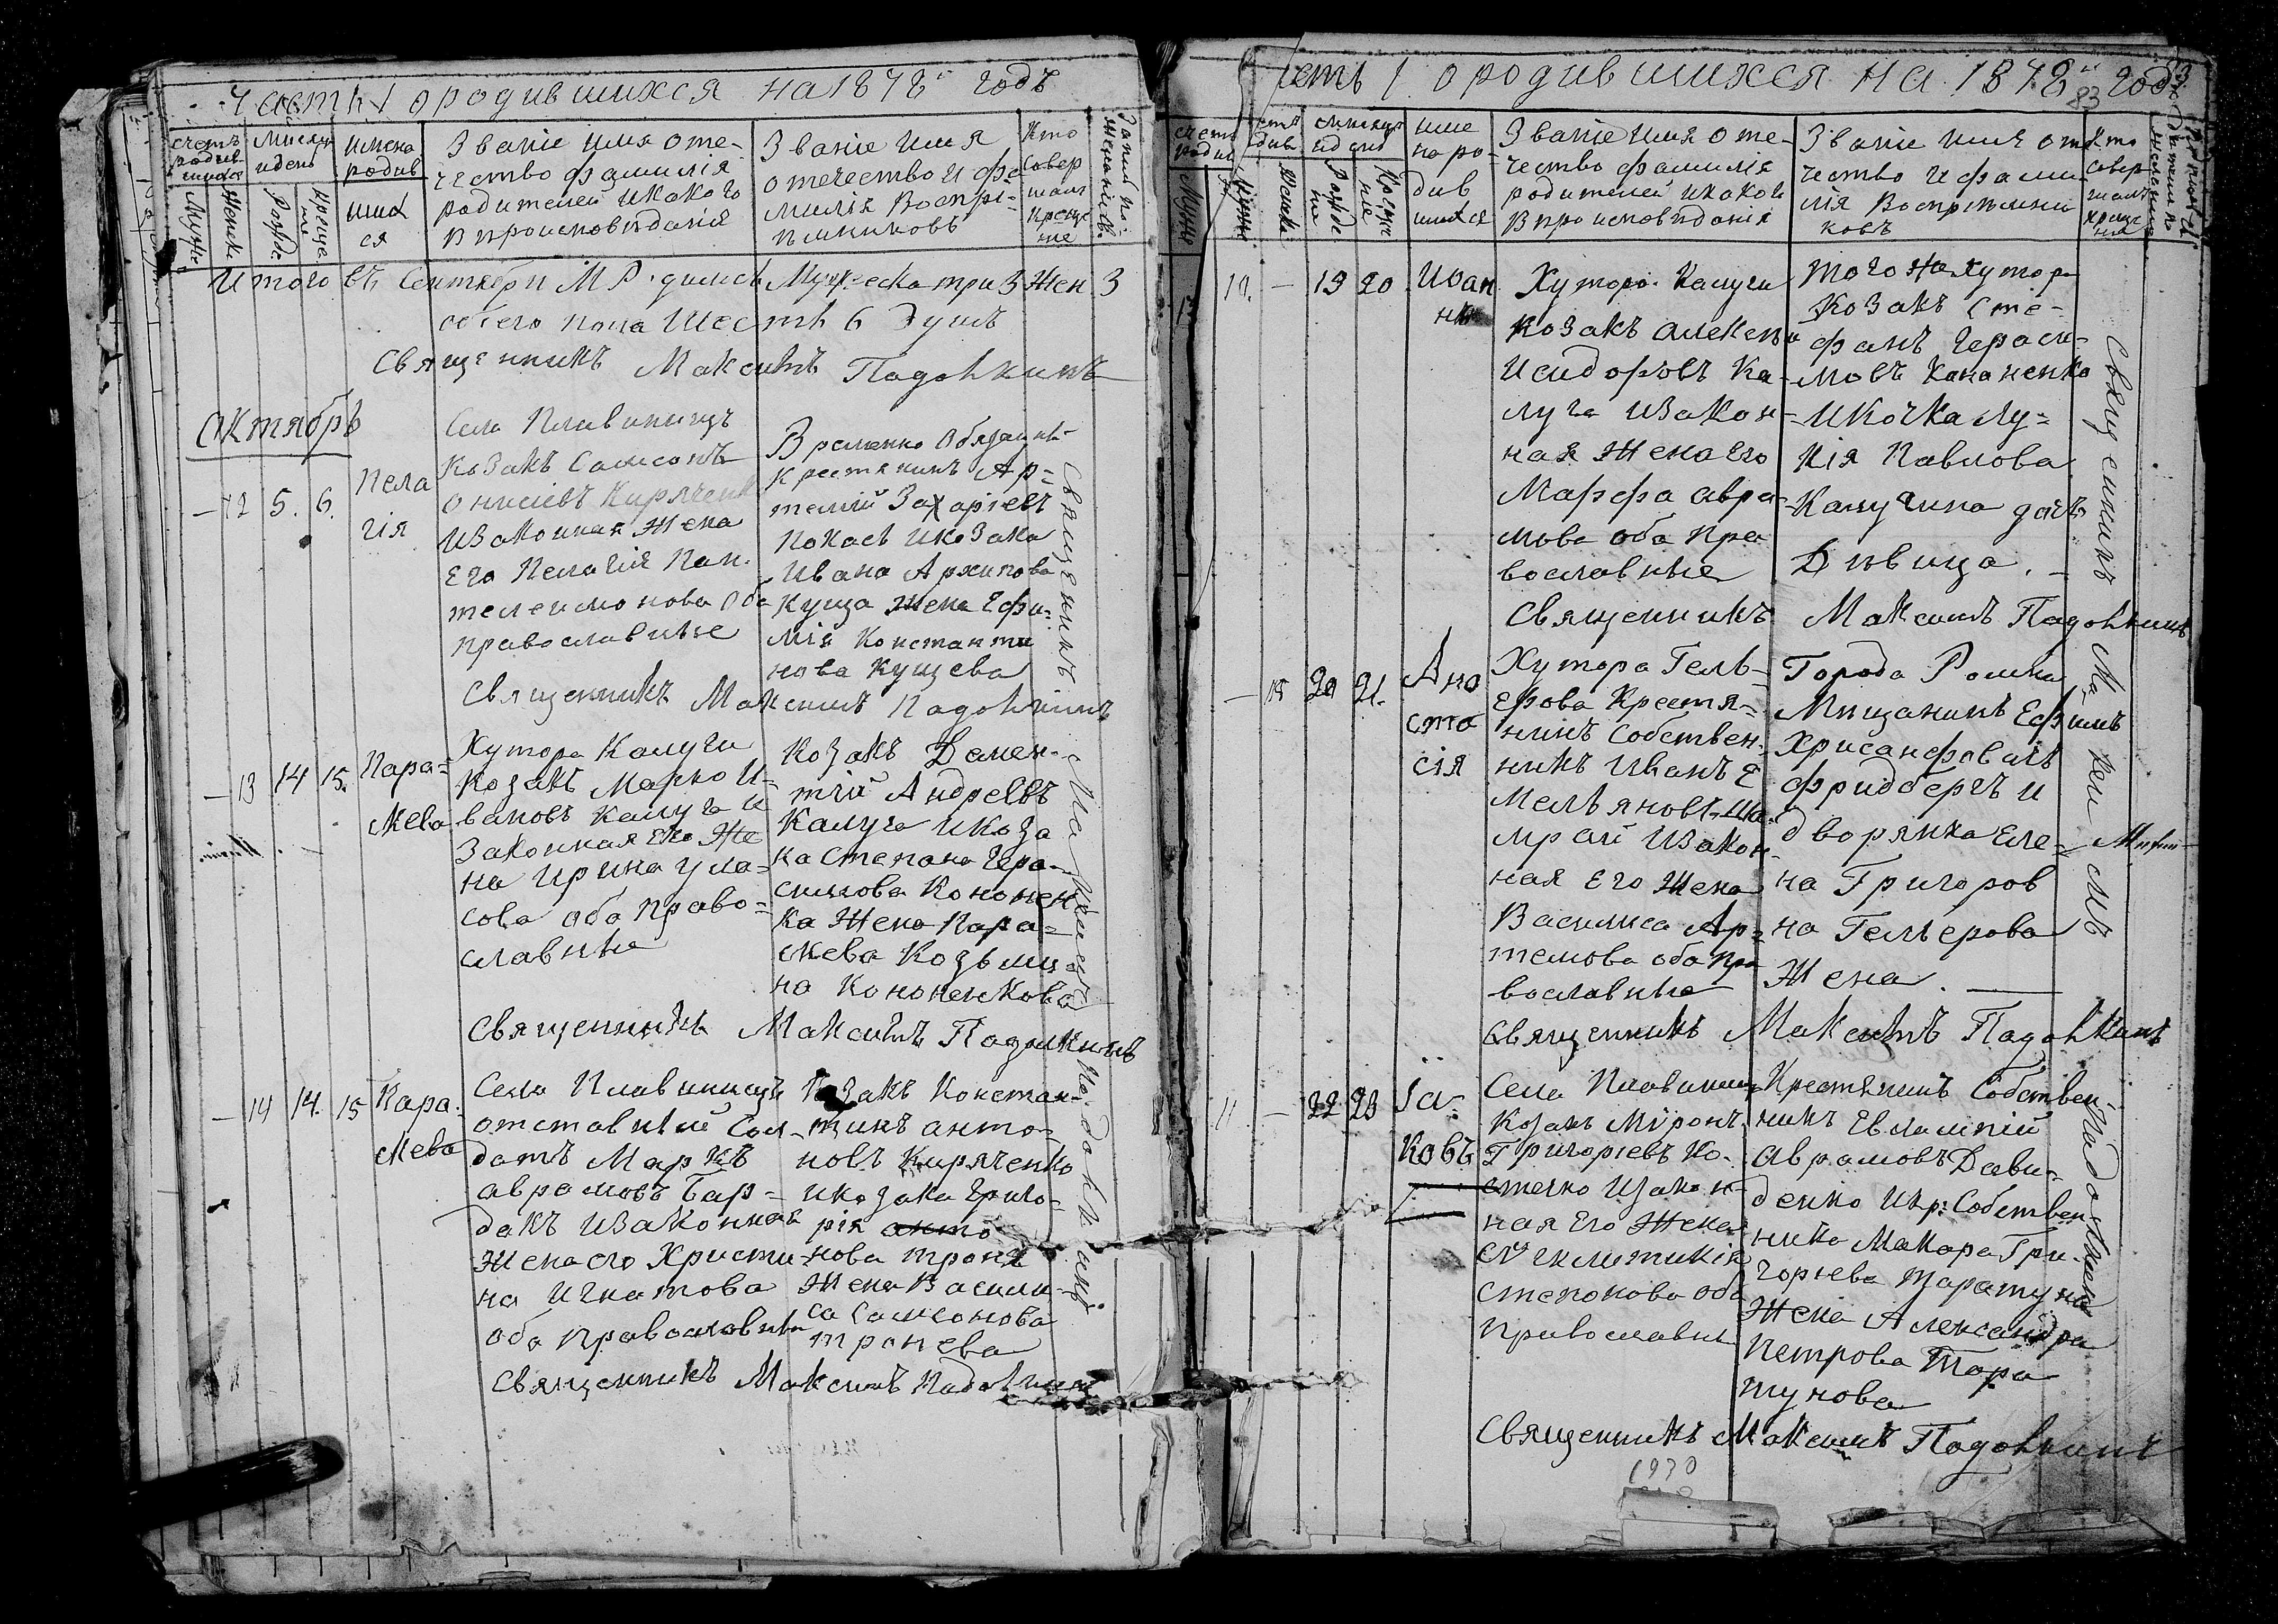 Часть 1 о родившихся на 1878й годъ
счетъ родив-шихся
Мужск.
Женск.
Месяцъ и день
Рожде.
Креще.
имена
родив
ших
ся
Званіе имя оте-
чество фамилія
родителей и какого
вѣроисповѣданія
Званіе имя
отечество и фа-
милія Воспрі-
ѣмниковъ
Кто
совер
шалъ
Креще
ніе
Итого въ Сентябрѣ М. Родилось Мужеска три 3 Жен 3
обоего пола Шесть 6 Душъ
Священникъ Максимъ Падолкинъ
Октябрь
— 12 5. 6.
Пела
гія
Села Плавинищъ
Козакъ Самсонъ
Онисіевъ Киряченк
и Законная Жена
Его Пелагія Пан.
телеимонова Оба
православные
Временно Обязанный
Крестянинъ Ар=
темій Захаріевъ
Покасъ и козака
Ивана Архипова
Куща Жена Ефи-
мія Константи
нова Кущева
Священникъ Максимъ Падолкинъ
— 13 14 15.
Пара=
скева
Хутора Калуги
Козакъ Марко И-
вановъ Калуга и
Законная Его Же
на Ирина Ула-
сова оба право=
славные
Козакъ Демен-
тій Андреевъ
Калуга и коза
ка Степана Гера-
симова Кононен
ка Жена Пара=
скева Козьми-
на Кононенкова
Священникъ Максимъ Падолкинъ
— 14 14. 15
Пара.
скева
Села Плавинищъ
отставный Сол-
датъ Маркъ
Аврамовъ Бар-
дакъ и Законная
Жена его Христи-
на Игнатова
оба Православные
Козакъ Констан-
тинъ Анто-
новъ Киряченко
и козака Григо-
рія Анто-
нова Троня
Жена Васили-
са Самсонова
Тронева
Священникъ Максимъ Падолкинъ
Священникъ Максимъ Падолкинъ
Часть 1 о родившихся на 1878й годъ
83
счетъ
родив
Мужск
Женск
Месяцъ
и день
Рожде
ніе
Креще
ніе
име
на ро-
див
шихся
Званіе имя оте-
чество фамилія
родителей и какого
Вѣроисповѣданія
Званіе имя оте
чество и фами-
лія Воспріѣмни
ковъ
Кто
совер
шалъ
Креще
ніе
10. — 19 20
Иоан
нъ
Хутора Калуги
Козакъ Алексѣй
Исидоровъ Ка-
луга и Закон-
ная Жена Его
Марфа Авра
мова оба Пра
вославные
Того же Хутора
Козакъ Сте-
фанъ Герасі-
мовъ Кононенко
и Козачка Лу=
кія Павлова
Калугина дочь
Дѣвица. —
Священникъ Максимъ Падолкинъ
— 15 20 21.
Ана
ста
сія
Хутора Гель-
ерова Крестя-
нинъ Собствен-
никъ Иванъ Е
мельяновъ Ша-
мрай и Закон-
ная Его Жена
Василиса Ар-
темова оба Пра
вославные
Города Ромна
Мѣщанинъ Ефимъ
Хрисанфовичъ
Фридбергъ и
дворянка Еле-
на Григоров
на Гельерова
Жена. —
Священникъ Максимъ Падолкинъ
11. — 22 23
Іа-
ковъ
Села Плавинищъ
Козакъ Миронъ
Григоріевъ Ко-
стенко и Закон
ная Его Жена
Сѵнклитикія
Степанова оба
Православны
Крестянинъ Собствен-
никъ Евлампій
Аврамовъ Дави-
денко и Кр: Собствен
ника Макара Гри-
горіева Таратуна
Жена Александра
Петрова Тара
тунова
Священникъ Максимъ Падолкинъ
Священникъ Максимъ Падолкинъ
1930